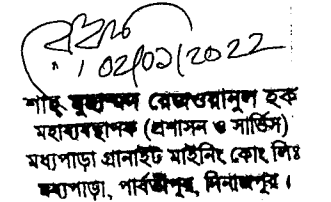 02/01/2022
শাহ্ মুহাম্মদ রেজওয়ানুল হক
মহাব্যবস্থাপক (প্রশাসন ও সার্ভিস)
মধ্যপাড়া গ্রানাইট মাইনিং কোং লিঃ
মধ্যপাড়া, পার্বতীপুর, দিনাজপুর।